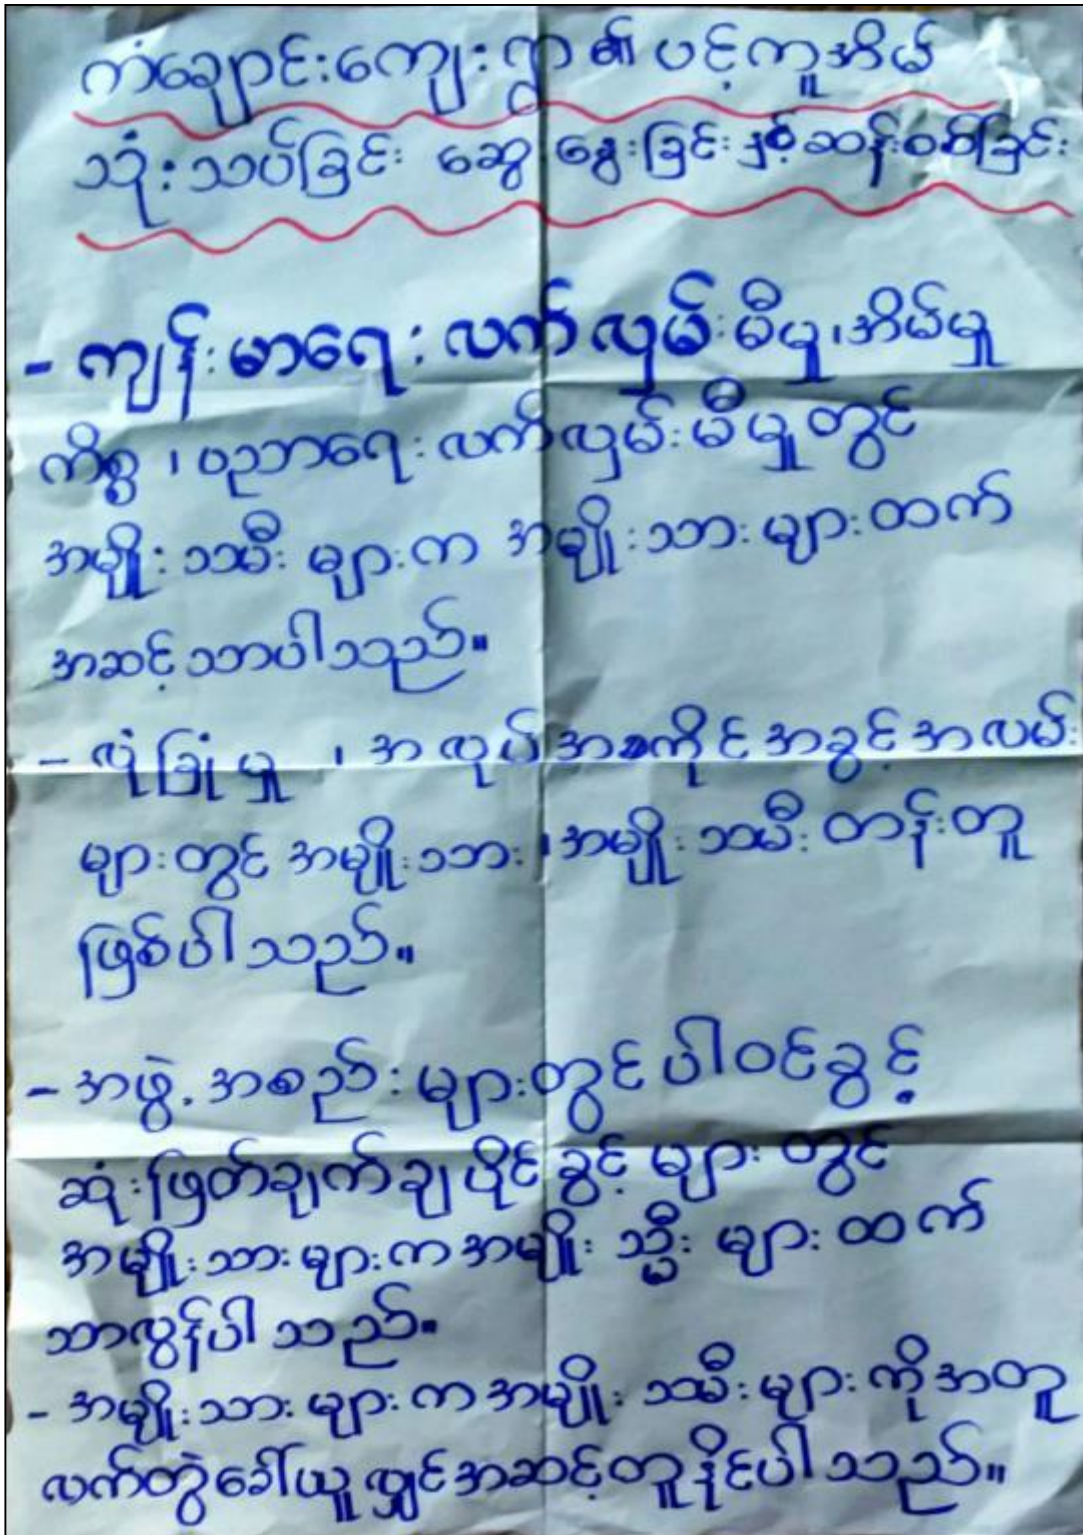 ကံချောင်းကျေးရွာ၏ ပင့်ကူအိမ်
သုံးသပ်ခြင်း ဆွေးနွေးခြင်းနှင့်ဆန်းစစ်ခြင်း
- ကျန်းမာရေး လက်လှမ်းမီမှု၊ အိမ်မှု
ကိစ္စ ၊ ပညာရေး လက်လှမ်းမီမှုတွင်
အမျိုးသမီးများက အမျိုးသားများထက်
အဆင့်သာပါသည်။
- လုံခြုံမှု ၊ အလုပ်အကိုင်အခွင့်အလမ်း
များတွင် အမျိုးသား ၊အမျိုးသမီး တန်းတူ
ဖြစ်ပါသည်။
- အဖွဲ့အစည်းများတွင် ပါဝင်ခွင့်
ဆုံးဖြတ်ချက်ချပိုင်ခွင့်များတွင်
အမျိုးသားများကအမျိုးသ္မီးများထက်
သာလွန်ပါသည်။
- အမျိုးသားများကအမျိုးသမီးများကိုအတူ
လက်တွဲခေါ်ယူလျှင်အဆင့်တူနိုင်ပါသည်။